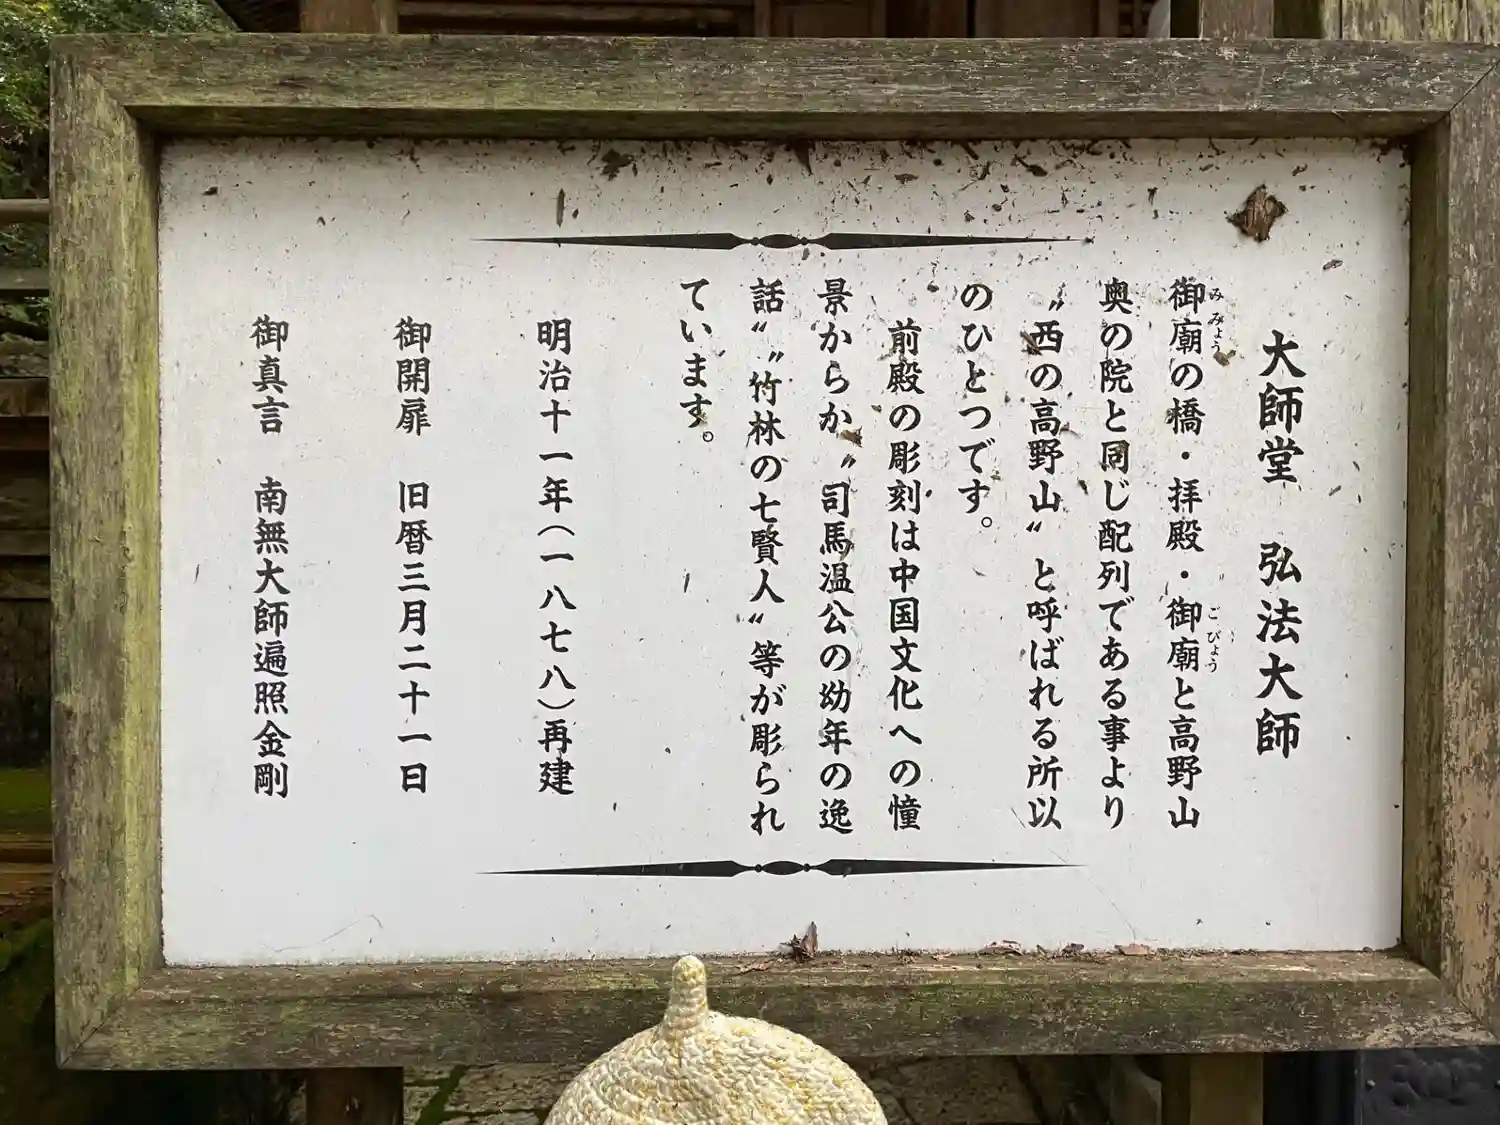 大師堂　弘法大師
御廟の橋・拝殿・御廟と高野山
みみょう
ごびょう
奥の院と同じ配列である事より
〝西の高野山〟と呼ばれる所以
のひとつです。
前殿の彫刻は中国文化への憧
景からか〝司馬温公の幼年の逸
話〟〝竹林の七賢人〟等が彫られ
ています。
明治十一年（一八七八）再建
御開扉　旧暦三月二十一日
御真言　南無大師遍照金剛